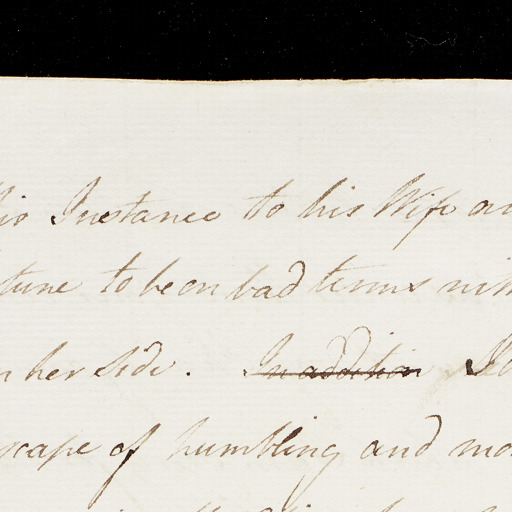 his Instance to his Wife an
tune to be on bad terms with
n her side. In addition
scape of humbling and mo